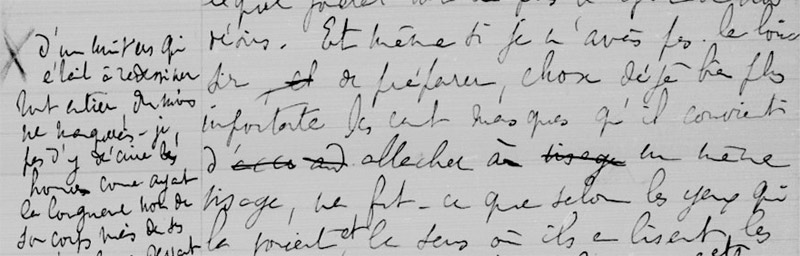 D'un univers qui
était à redessiner
tout entier du moins
ne manquerais-je
pas d'y décrire les
hommes comme ayant
la longueur non de
son corps mais de ses
Et même si je n'avais pas le loi
sir, et de préparer, chose déjà bien plus
importante les cent masques qu'il convient
d' attacher à un visage un même
visage, ne fut-ce que selon les yeux qui
le voient et le sens où ils en lisent les